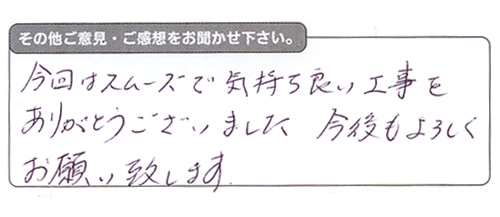 その他ご意見・ご感想をお聞かせ下さい。
今回はスムーズで気持ち良い工事を
ありがとうございました 今後もよろしく
お願い致します